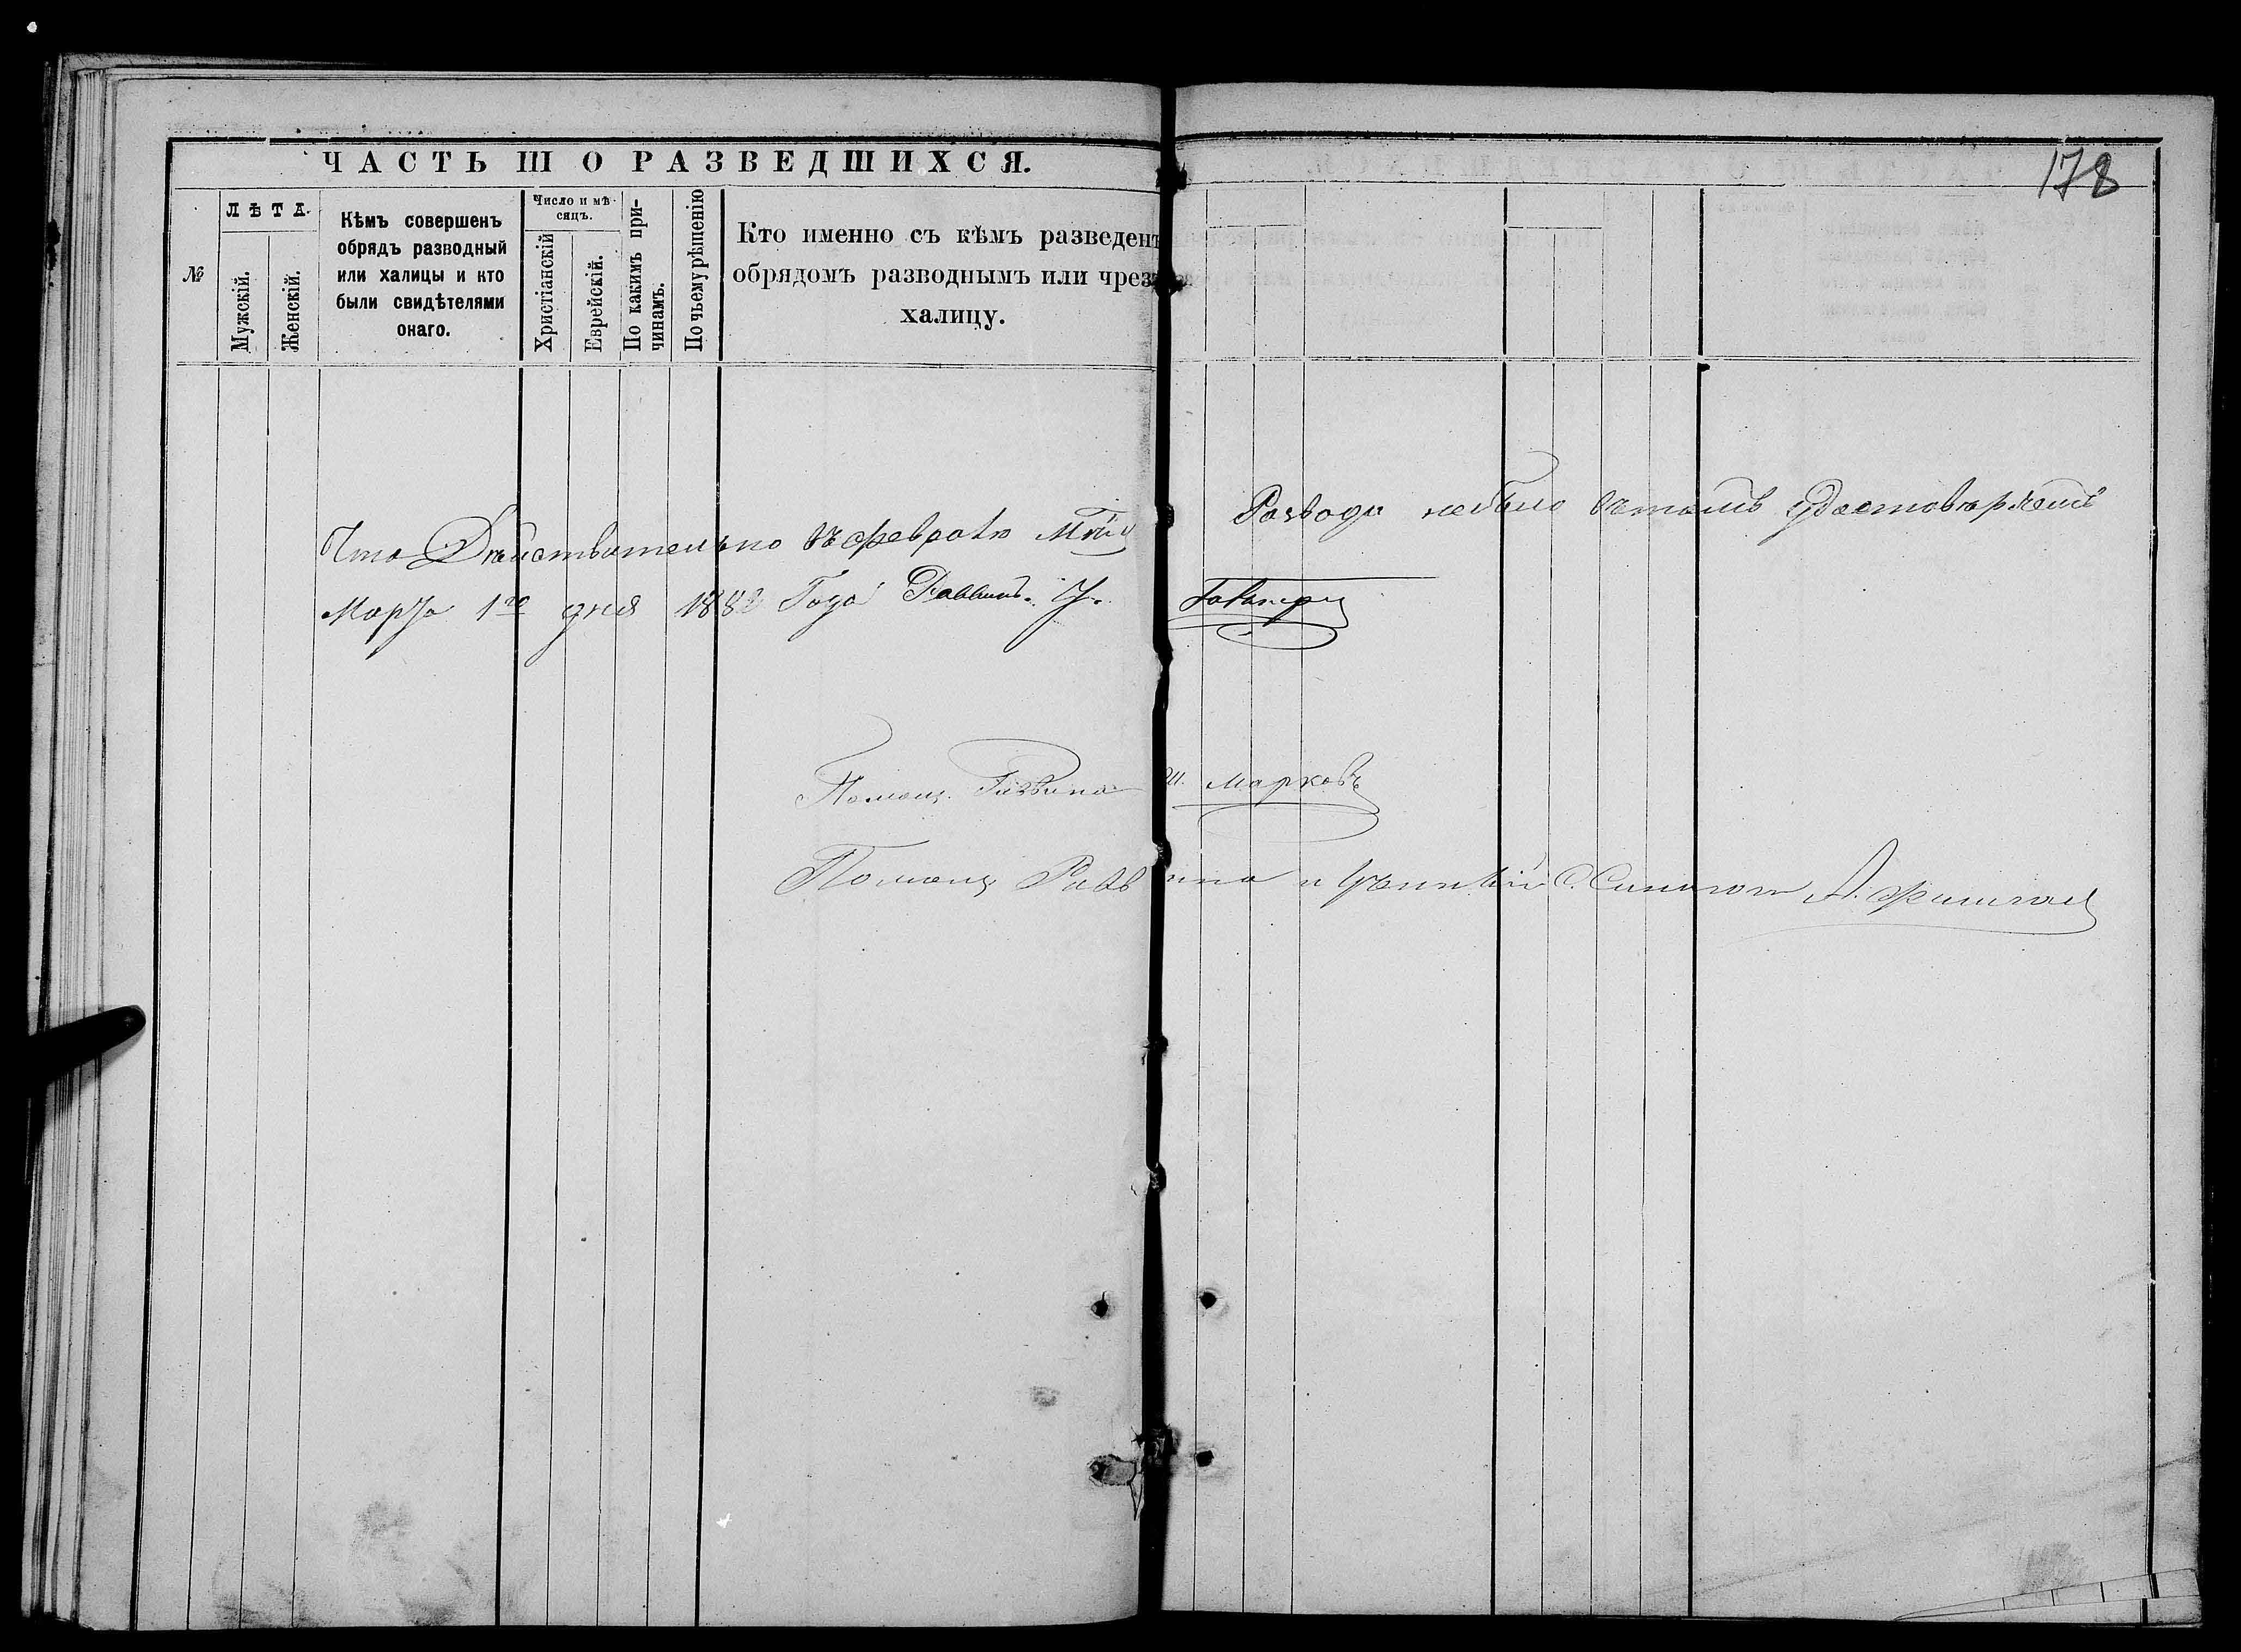 ЧАСТЬ III О РАЗВЕДШИХСЯ.
178
№
ЛѢТА.
Мужскій.
Женскій.
Кѣмъ совершенъ
обрядъ разводный
или халицы и кто
были свидѣтелями
онаго.
Число и мѣ-
сяцъ.
Христіанскій
Еврейскій.
По какимъ при-
чинамъ.
По чьему рѣшенію
Кто именно съ кѣмъ разведенъ
обрядомъ разводнымъ или чрезъ
халицу.
Что Дѣйствительно въ февралѣ Мцѣ Развода небыло въ томъ удостовѣряемъ
Марта 1го дня 1882 Года Раввинъ
Помощ. Раввина Марковъ
Помощ Раввина и